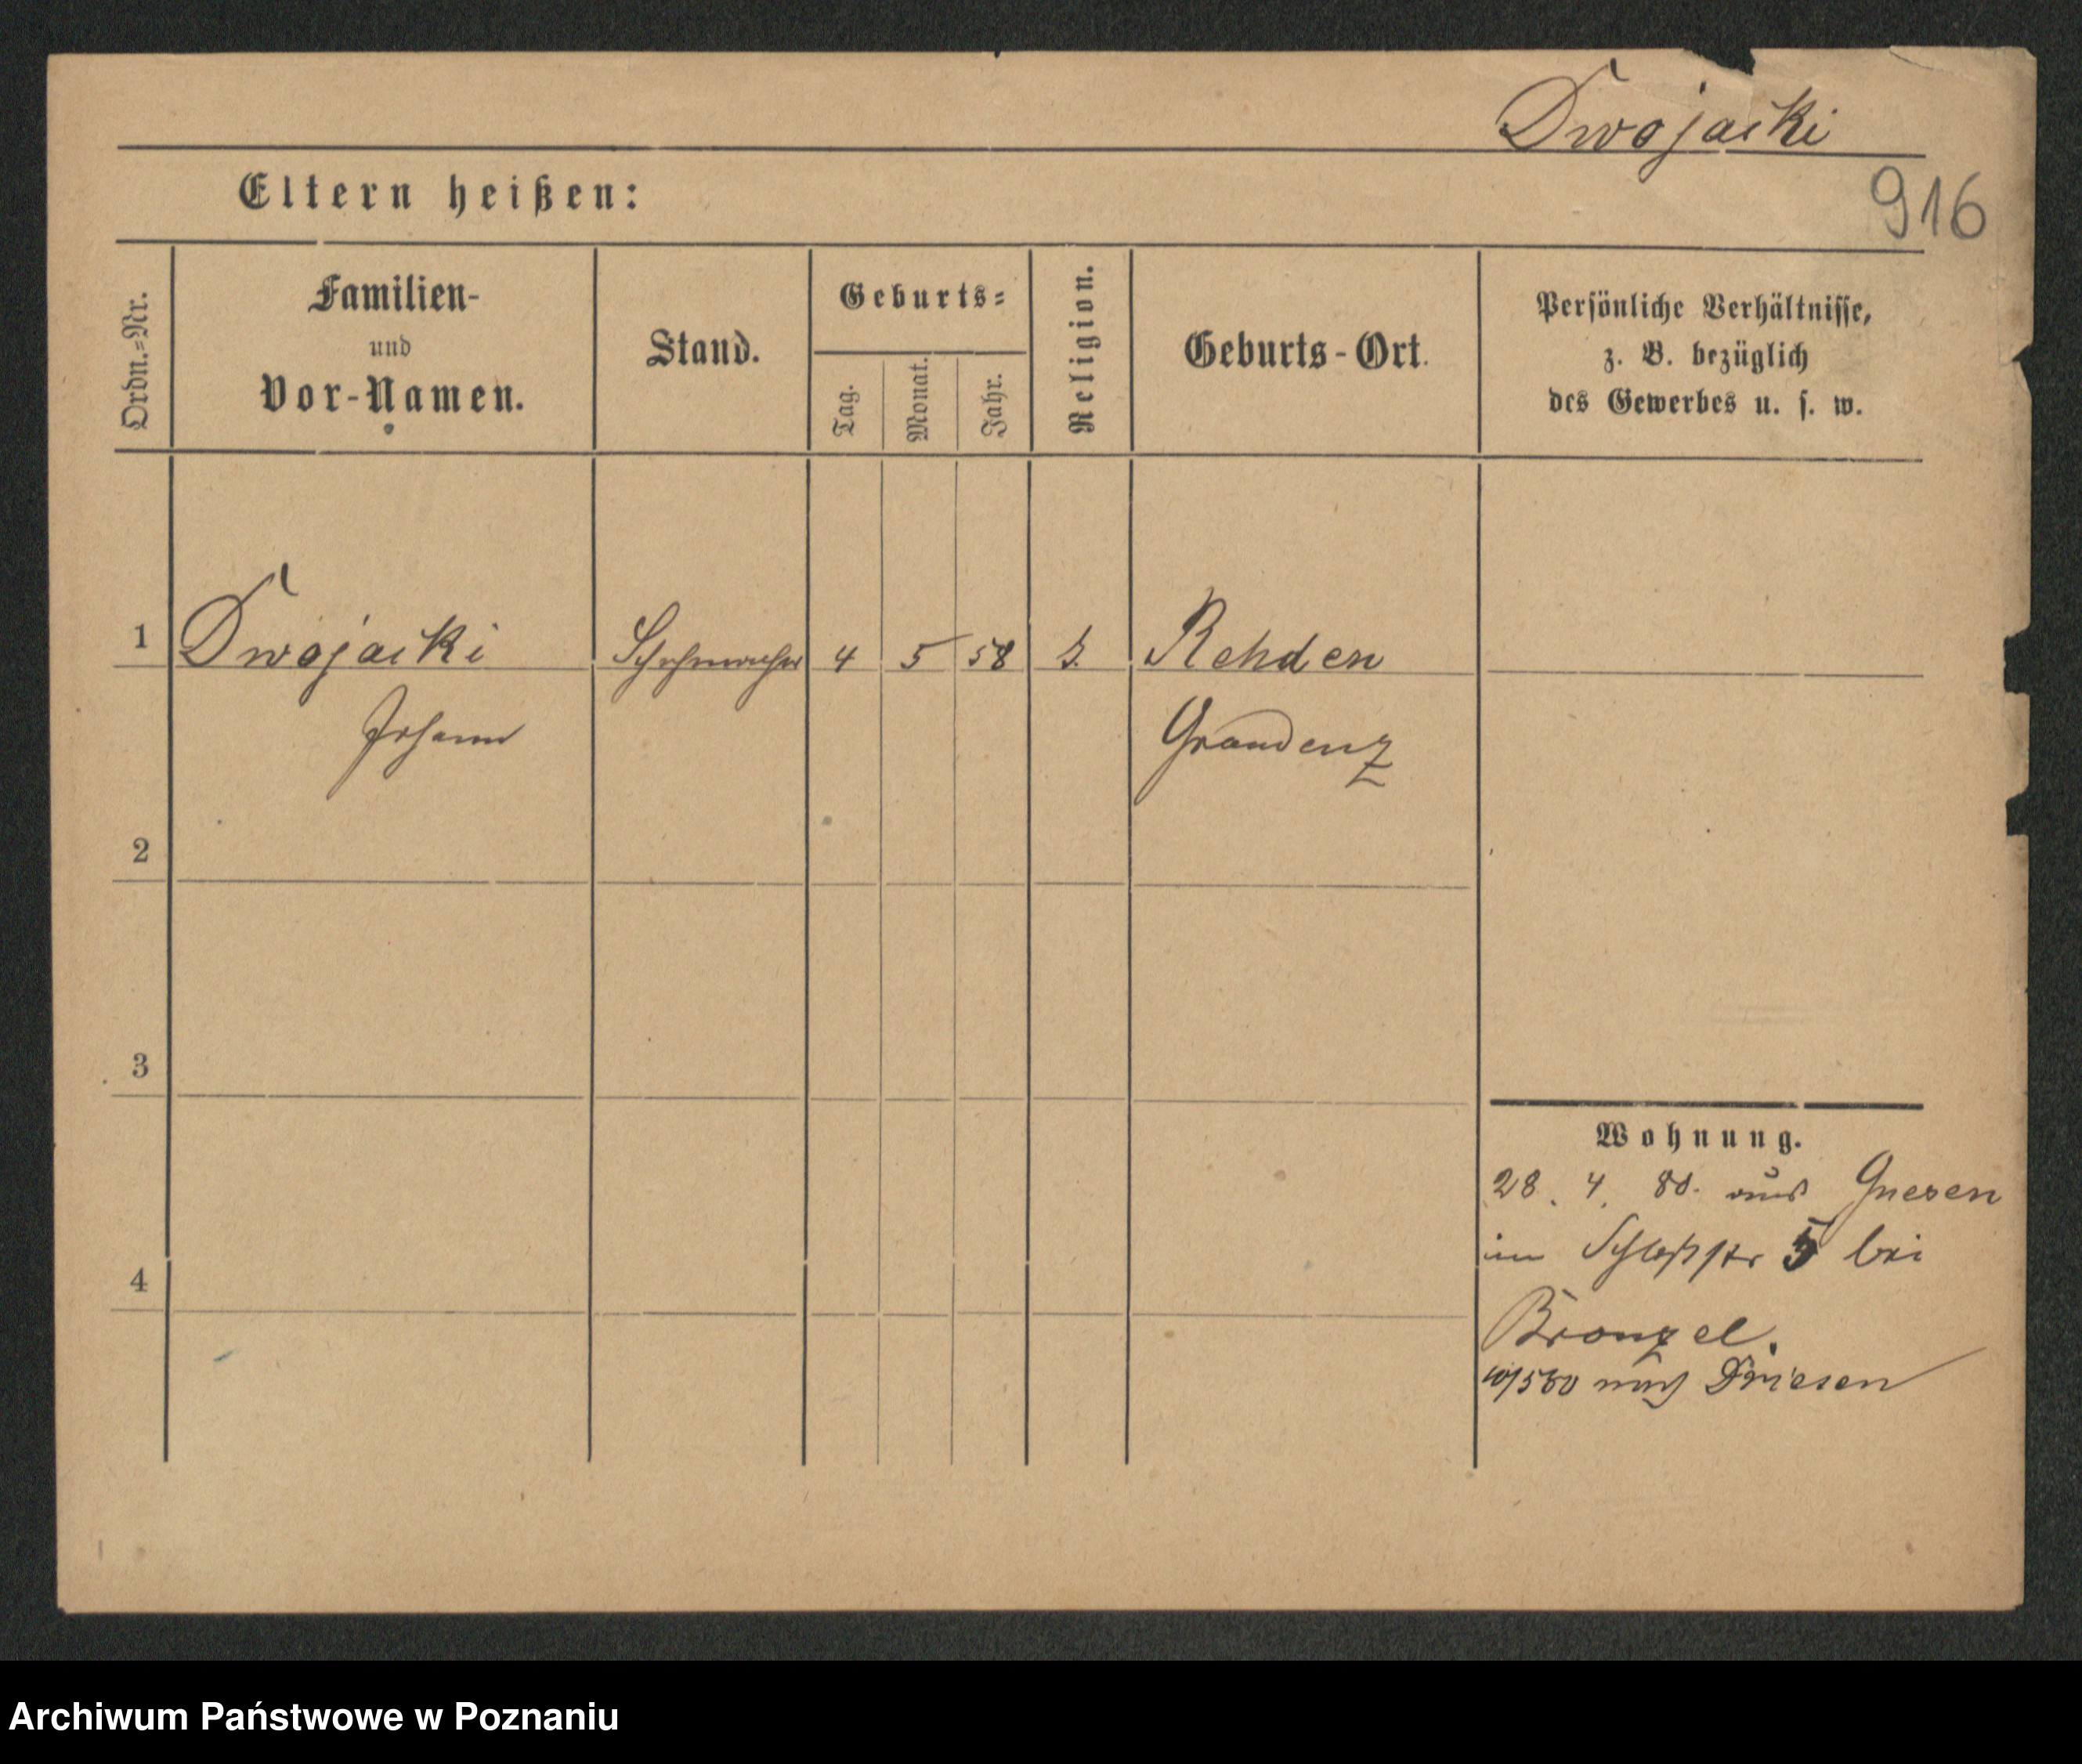 Dwojacki
916
Eltern heißen:
Ordn.=Nr.
Familien-
und
Vor-Namen.
Stand.
Geburts=
Tag.
Monat.
Jahr.
Religion.
Geburts-Ort.
Persönliche Verhältnisse,
z. B. bezüglich
des Gewerbes u. s. w.
1 Dwojacki Schuhmacher 4 5 58 Rehden
Johann Graudenz
2
3
4
Wohnung.
28. 4. 80. aus Gnesen
im Schloßstr 5 bei
Bronzel.
nach Driesen
Archiwum Państwowe w Poznaniu